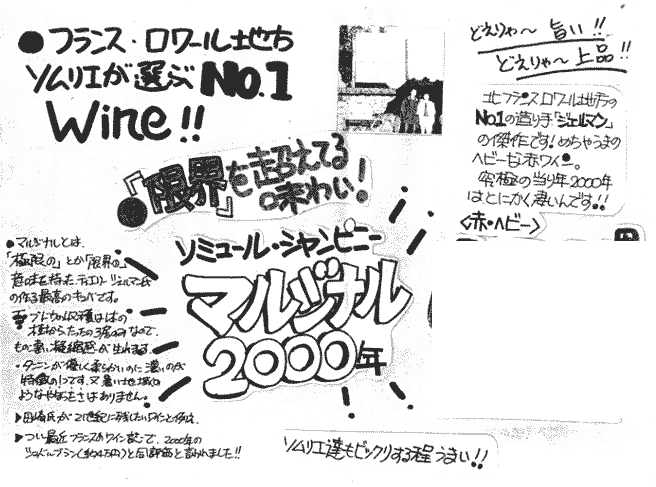 ●フランス・ロワール地方
ソムリエが選ぶNo.1
Wine!!
「限界」を超えてる
味わい!
どえりゃ〜旨い!!
どえりゃ〜上品!!
北フランスロワール地方の
No.1の造り手「ジェルマン」
の傑作です!めちゃうまの
ヘビーな赤ワイン。
究極の当り年2000年
はとにかく凄いんです!!
<赤・ヘビー>
ソミュール・シャンピニー
マルジナル
2000年
●マルジナルとは、
「極限の」とか「限界の」
意味を持つティエリージェルマン氏
の作る最高のキュベです。
ブドウの収穫は1本の
木からたったの3房のみなので、
もの凄い凝縮感が生れます。
・タニンが優しく柔らかいのに濃いのが
特徴の1つです。又暑い地域の
ようなやぼったさはありません。
▶田崎氏が21世紀に残したいワインと
▶つい最近フランスのワイン誌で、2000年の
シュヴァルブラン(約4万円)と同評価と言われました!!
ソムリエ達もビックリする程うまい!!